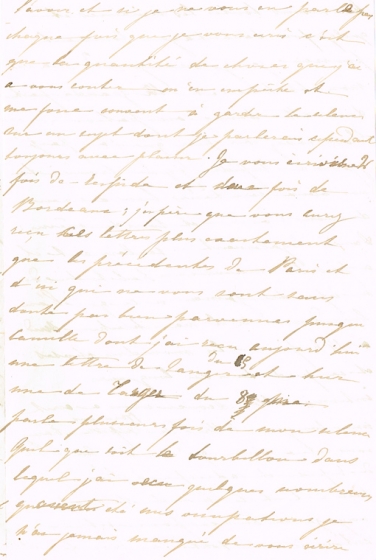 et si je ne vous en parle pas
chaque fois que je vous écris c'est
que la quantité de choses que j'ai
a vous conter m'en empêche et
me force souvent à garder le silence
sur un sujet dont je parlerais
toujours avec plaisir. Je vous
fois de et deux fois de
Bordeaux; j'espère que vous
reçu ces lettres plus exactement
que les précédentes de Paris et
d'ici qui ne vous sont sans
doute pas bien parvenues puisque
Camille dont j'ai reçu aujourd'hui
une lettre de du 13 et hier
une de Tanger du 8
parle plusieurs fois de mon silence
Quel que soit le tourbillon dans
lequel j'ai vécu quelques nombreuses
qu'aient été mes occupations je
n'ai jamais manqué de vous écrire